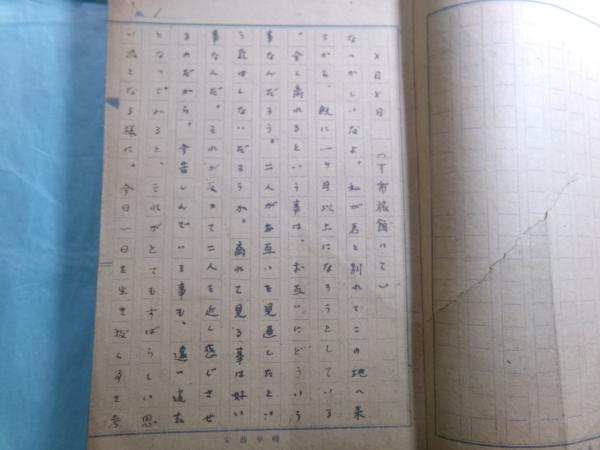 ×月×日　（T市旅館にて）
なつかしいなよ。私が君と別れてこの地へ来
てから、既に一ヶ月以上になろうとしている
。全く離れるという事は、お互いにどういう
事なんだろう。二人がお互いを見通したとい
う気はしないだろうか。離れて見る事は好い
事なんだ。それが反って二人を近し感じさせ
るのだから。今苦しんでいる事も、遠い過去
となって、みると、それがとてもすばらしい思
い出となる様に。今日一日を生き抜く事を考